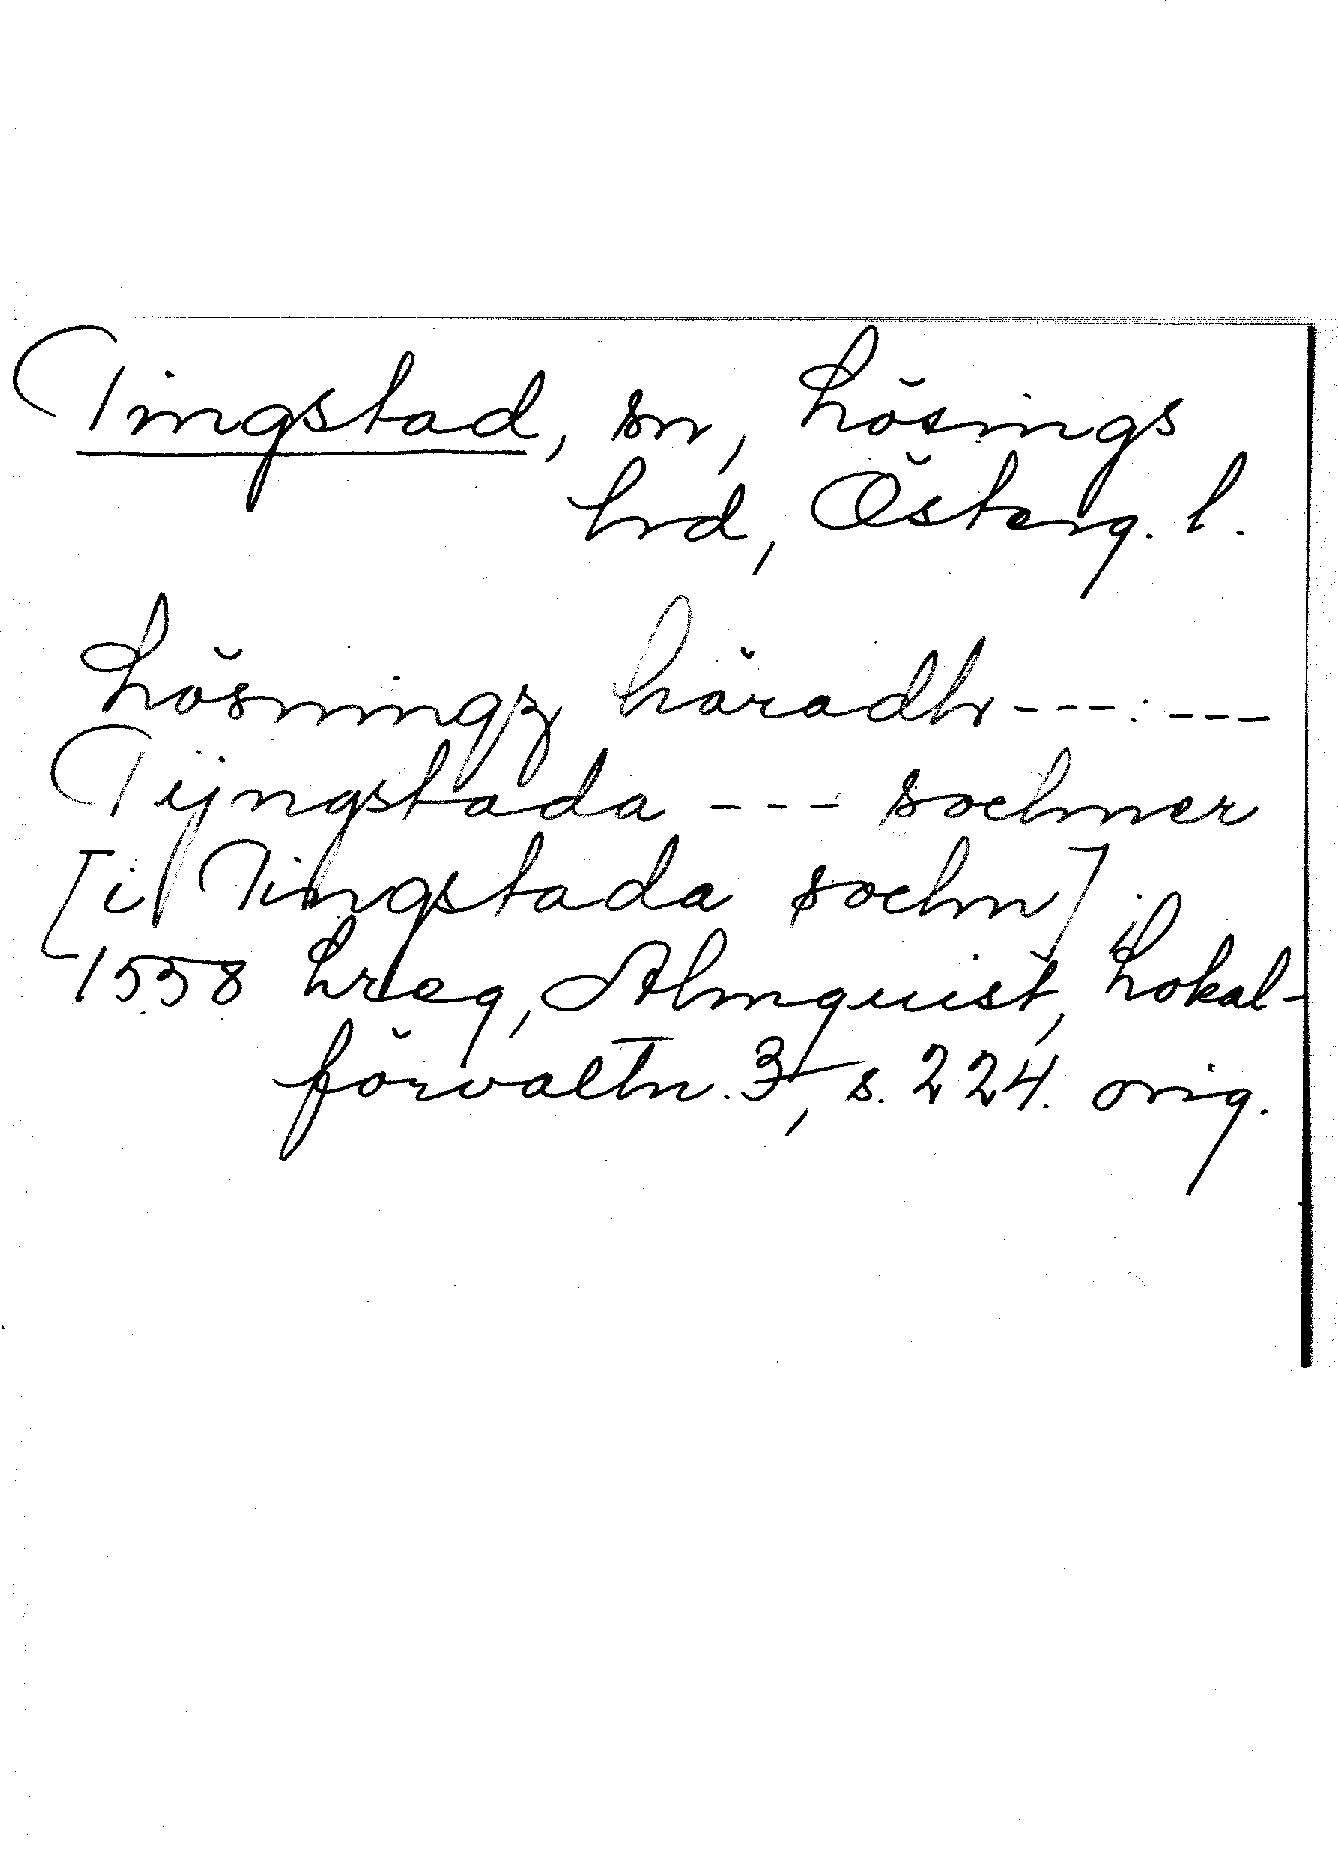 Tingstad, sn, Lösings
hrd, Österg. l.
Lösningz häradh --- : ---
Tijngstada --- sochner
[i Tingstada sochn].
1558 Lreg, Almquist, Lokal-
förvaltn. 3, s. 224. orig.